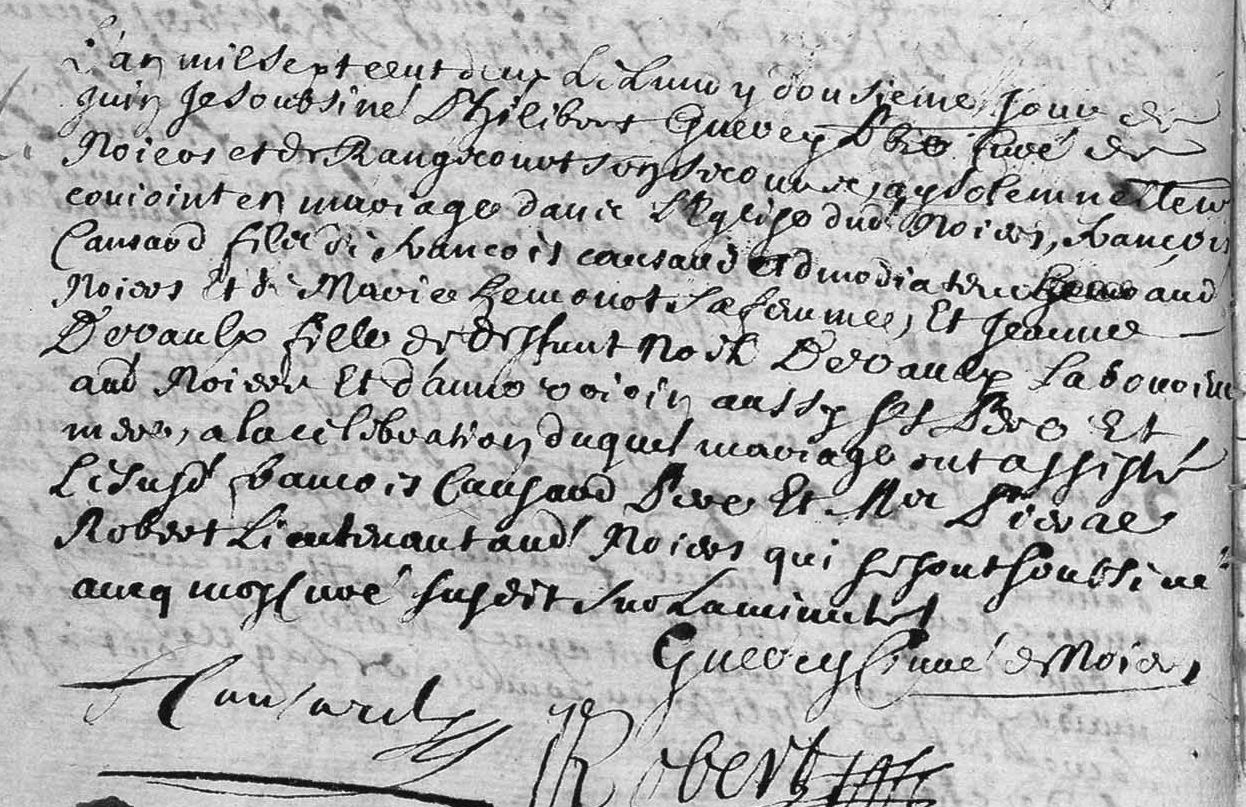 L'an mil sept cent deux le Lundy dousieme jour de
juin je soubsiné Philibert Guerey Pbre Curé de
Noiers et de Rangecourt son secours, ay solemnellem
conioint en mariage dans l'Eglise dud Noiers, François
Cansard fils de François cansard admodiateur aud
Noiers Et de Marie hemonot sa femme, Et Jeanne
Devaulx fille de deffunt Noel Devaulx laboureur
aud Noiers Et d'anne voirin aussy ses Pere Et
mere, a la celebration duquel mariage ont assisté
Le susd françois Cansard Pere Et Mre Pierre
Robert Lieutenant aud Noiers qui se sont soubsiné
avecq moy Curé susdit sur la minutte
Guerey Curé de Noiers
F Cansard
Robert